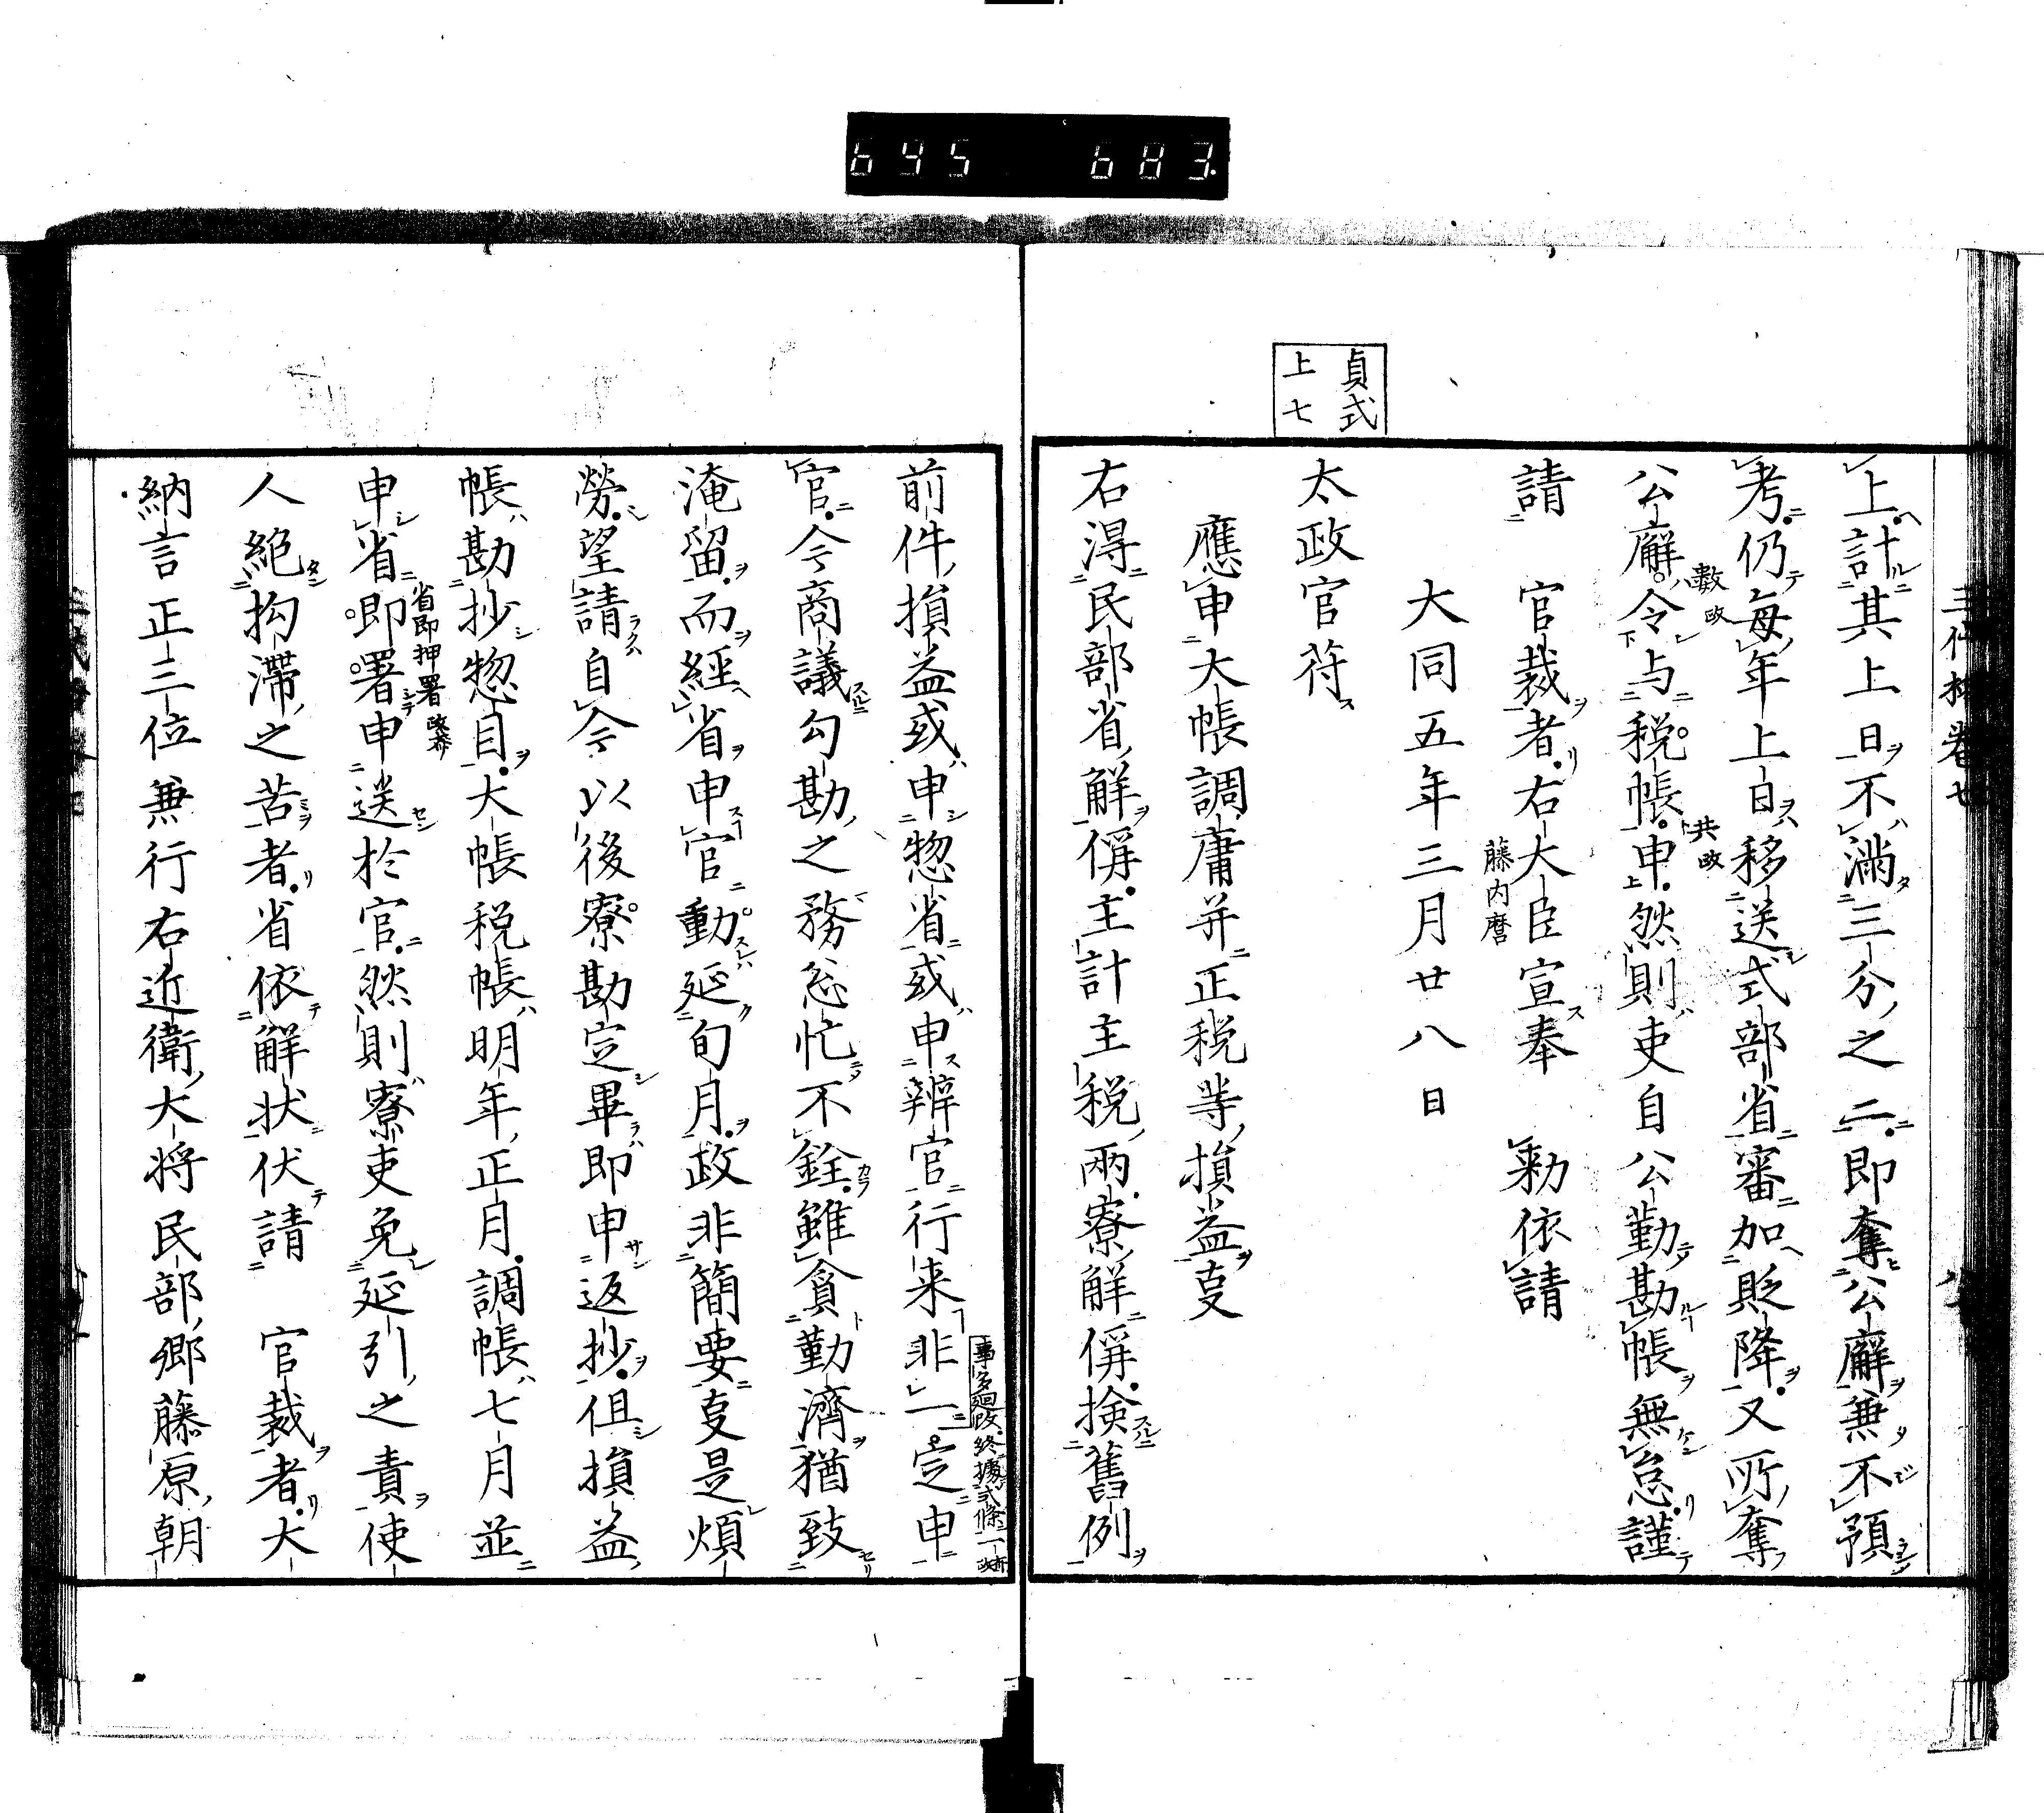 645 683.
貞式
上七
上計其上日不滿三分之二即奪公廨兼不預
考仍每年上日移送式部省審加貶降又所奪
數政
公廨令与税帳申然則吏自公勤勘帳無怠謹
共政
請 官裁者右大臣宣奉 勅依請
藤内麿
大同五年三月廿八日
太政官符
應申大帳調庸并正税等損益㕝
右得民部省解偁主計主税兩寮解偁撿舊例
前件損益或申惣省或申辨官行来非一定申
官今商議勾勘之務怱忙不銓雖貪勤濟猶致
淹留而經省申官動延旬月政非簡要㕝是煩
勞望請自今以後寮勘定畢即申返抄但損益
帳勘抄惣目大帳税帳明年正月調帳七月並
申省即署申送於官然則寮吏免延引之責使
省即押署政
人絶拘滯之苦者省依解状伏請 官裁者大
納言正三位兼行右近衛大将民部卿藤原朝